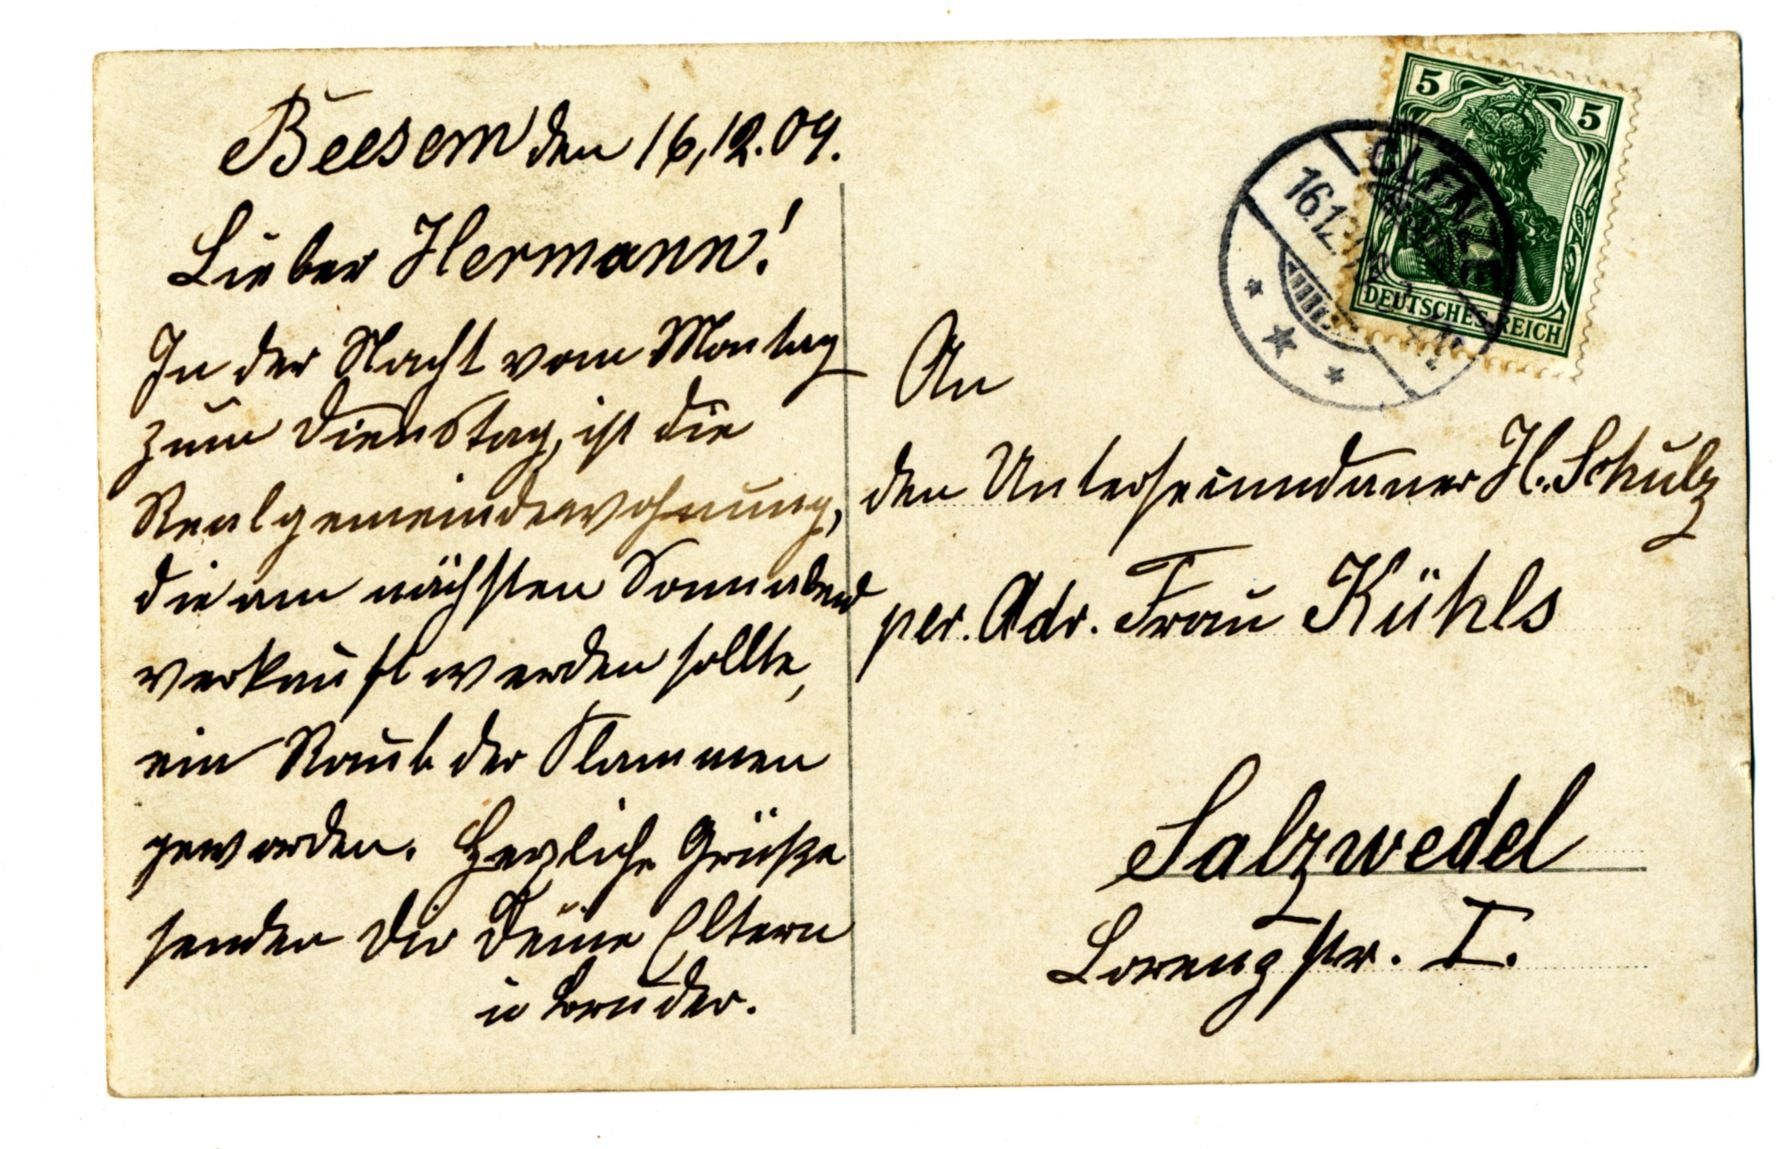 Beesem den 16,12.09.
Lieber Hermann!
In der Nacht vom Montag
zum Dienstag, ist die
Realgemeindewohnung,
die am nächsten Sonnabend
verkauft werden sollte,
ein Raub der Flammen
geworden. Herzliche Grüße
senden Dir Deine Eltern
u Bruder.
5 5
DEUTSCHES REICH
CLENZE
16.12.
An
den Untersecundaner H. Schulz
per. Adr. Frau Kühls
Salzwedel
Lorenzstr. I.